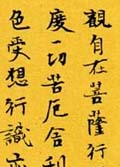 觀自在菩薩行
度一切苦厄舍利
色受想行識亦